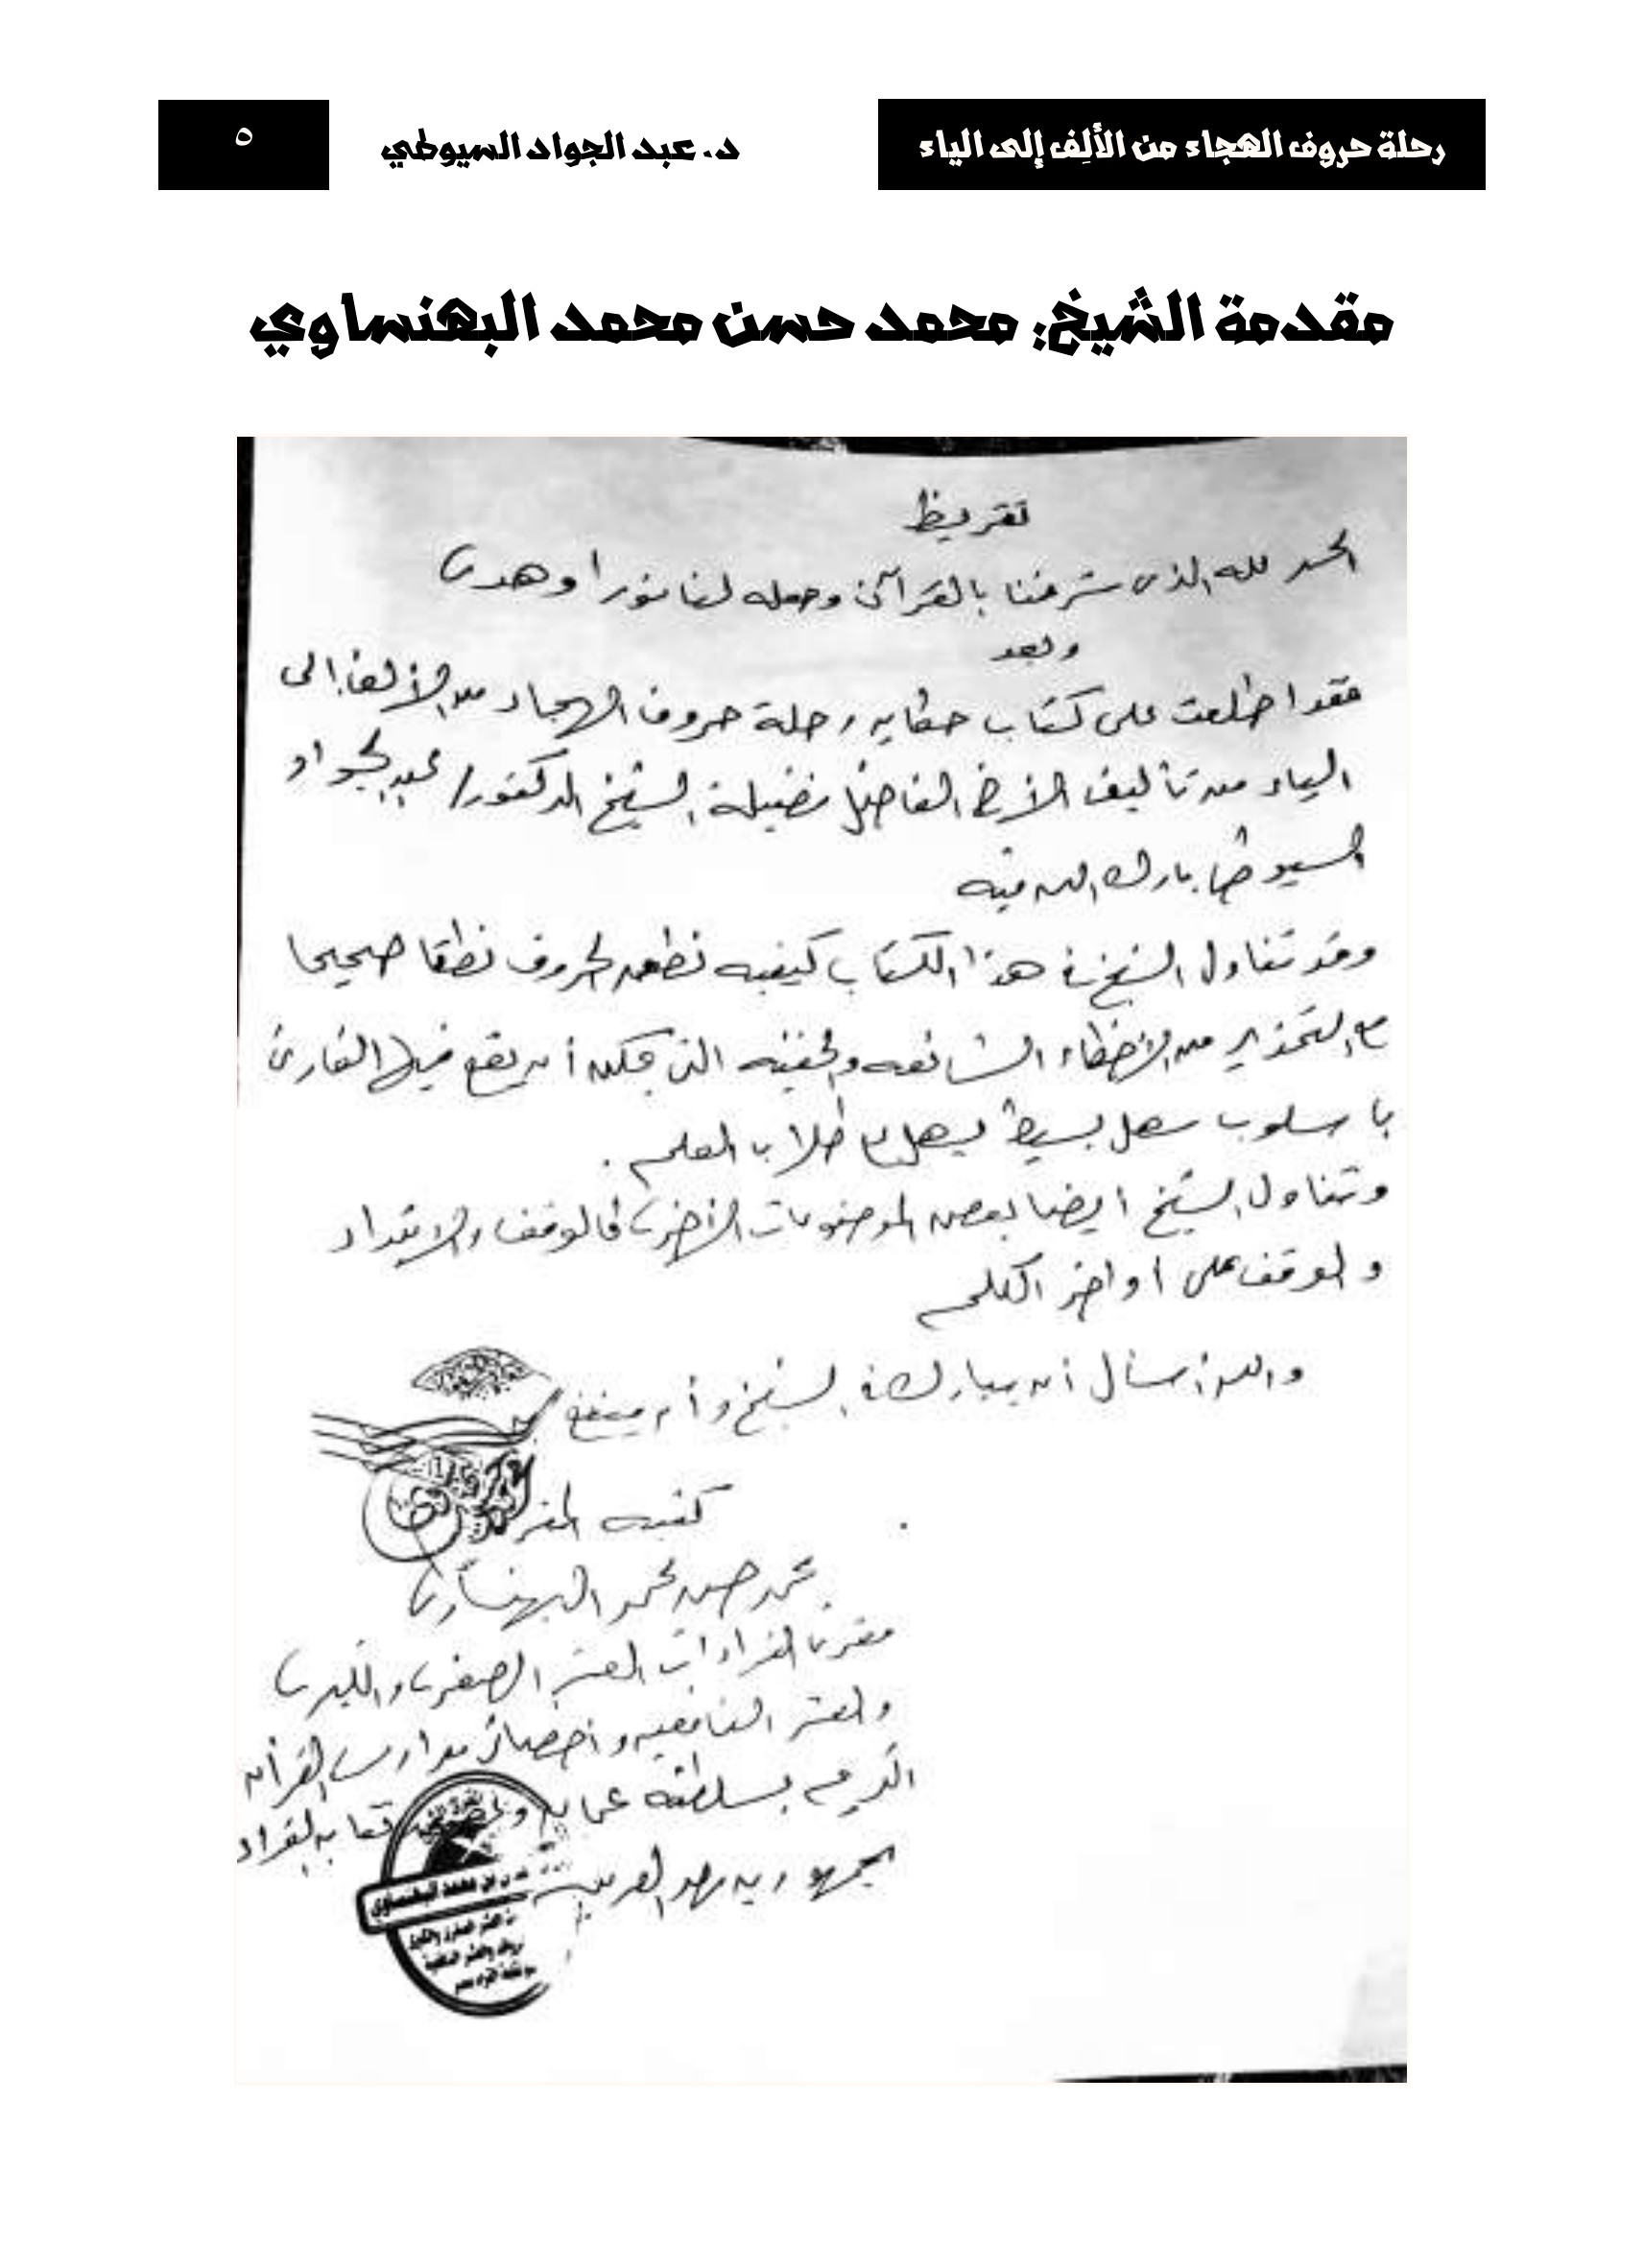 رحلة حروف الهجاء من الألِف إلى الياء
د. عبد الجواد السيوطي
٥
مقدمة الشيخ: محمد حسن محمد البهنساوي
تقريظ
الحمد لله الذى شرفنا بالقرآن وجعله لنا نورا وهدى
وبعد
فقد اطلعت على كتاب رحلة حروف الهجاء من الألف الى
الياء من تأليف الأخ الفاضل فضيلة الشيخ الدكتور/ عبد الجواد
السيوطى بارك الله فيه
وقد تناول الشيخ فى هذا الكتاب كيفيه نطق الحروف نطقا صحيحا
مع التحذير من الأخطاء الشائعه والخفيه التى يمكن أن يقع فيها القارئ
باسلوب سهل بسيط يسهل على طلاب العلم .
وتناول الشيخ ايضا بعض الموضوعات الأخرى كالوقف والابتداء
والوقف على اواخر الكلم
والله أسأل أن يبارك فى الشيخ وأن ينفع
كتبه
محمد حسن محمد البهنساوى
مقرئ القراءات العشر الصغرى والكبرى
والعشر النافعيه و مدارس القرآن
الكريم بسلطنه عمان نقابه القراء
جمهوريه مصر العربيه
محمد البهنساوي